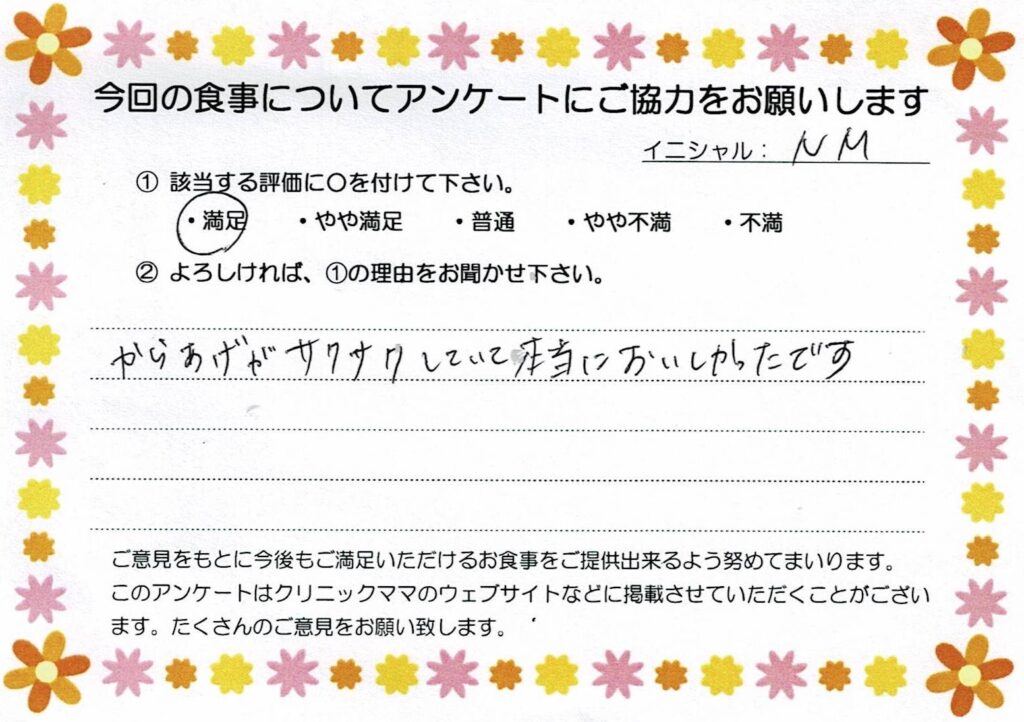 今回の食事についてアンケートにご協力をお願いします
イニシャル： NM
① 該当する評価に〇を付けて下さい。
・満足 ・やや満足 ・普通 ・やや不満 ・不満
② よろしければ、①の理由をお聞かせ下さい。
からあげがサクサクしていて本当においしかったです
ご意見をもとに今後もご満足いただけるお食事をご提供出来るよう努めてまいります。
このアンケートはクリニックママのウェブサイトなどに掲載させていただくことがござい
ます。たくさんのご意見をお願い致します。